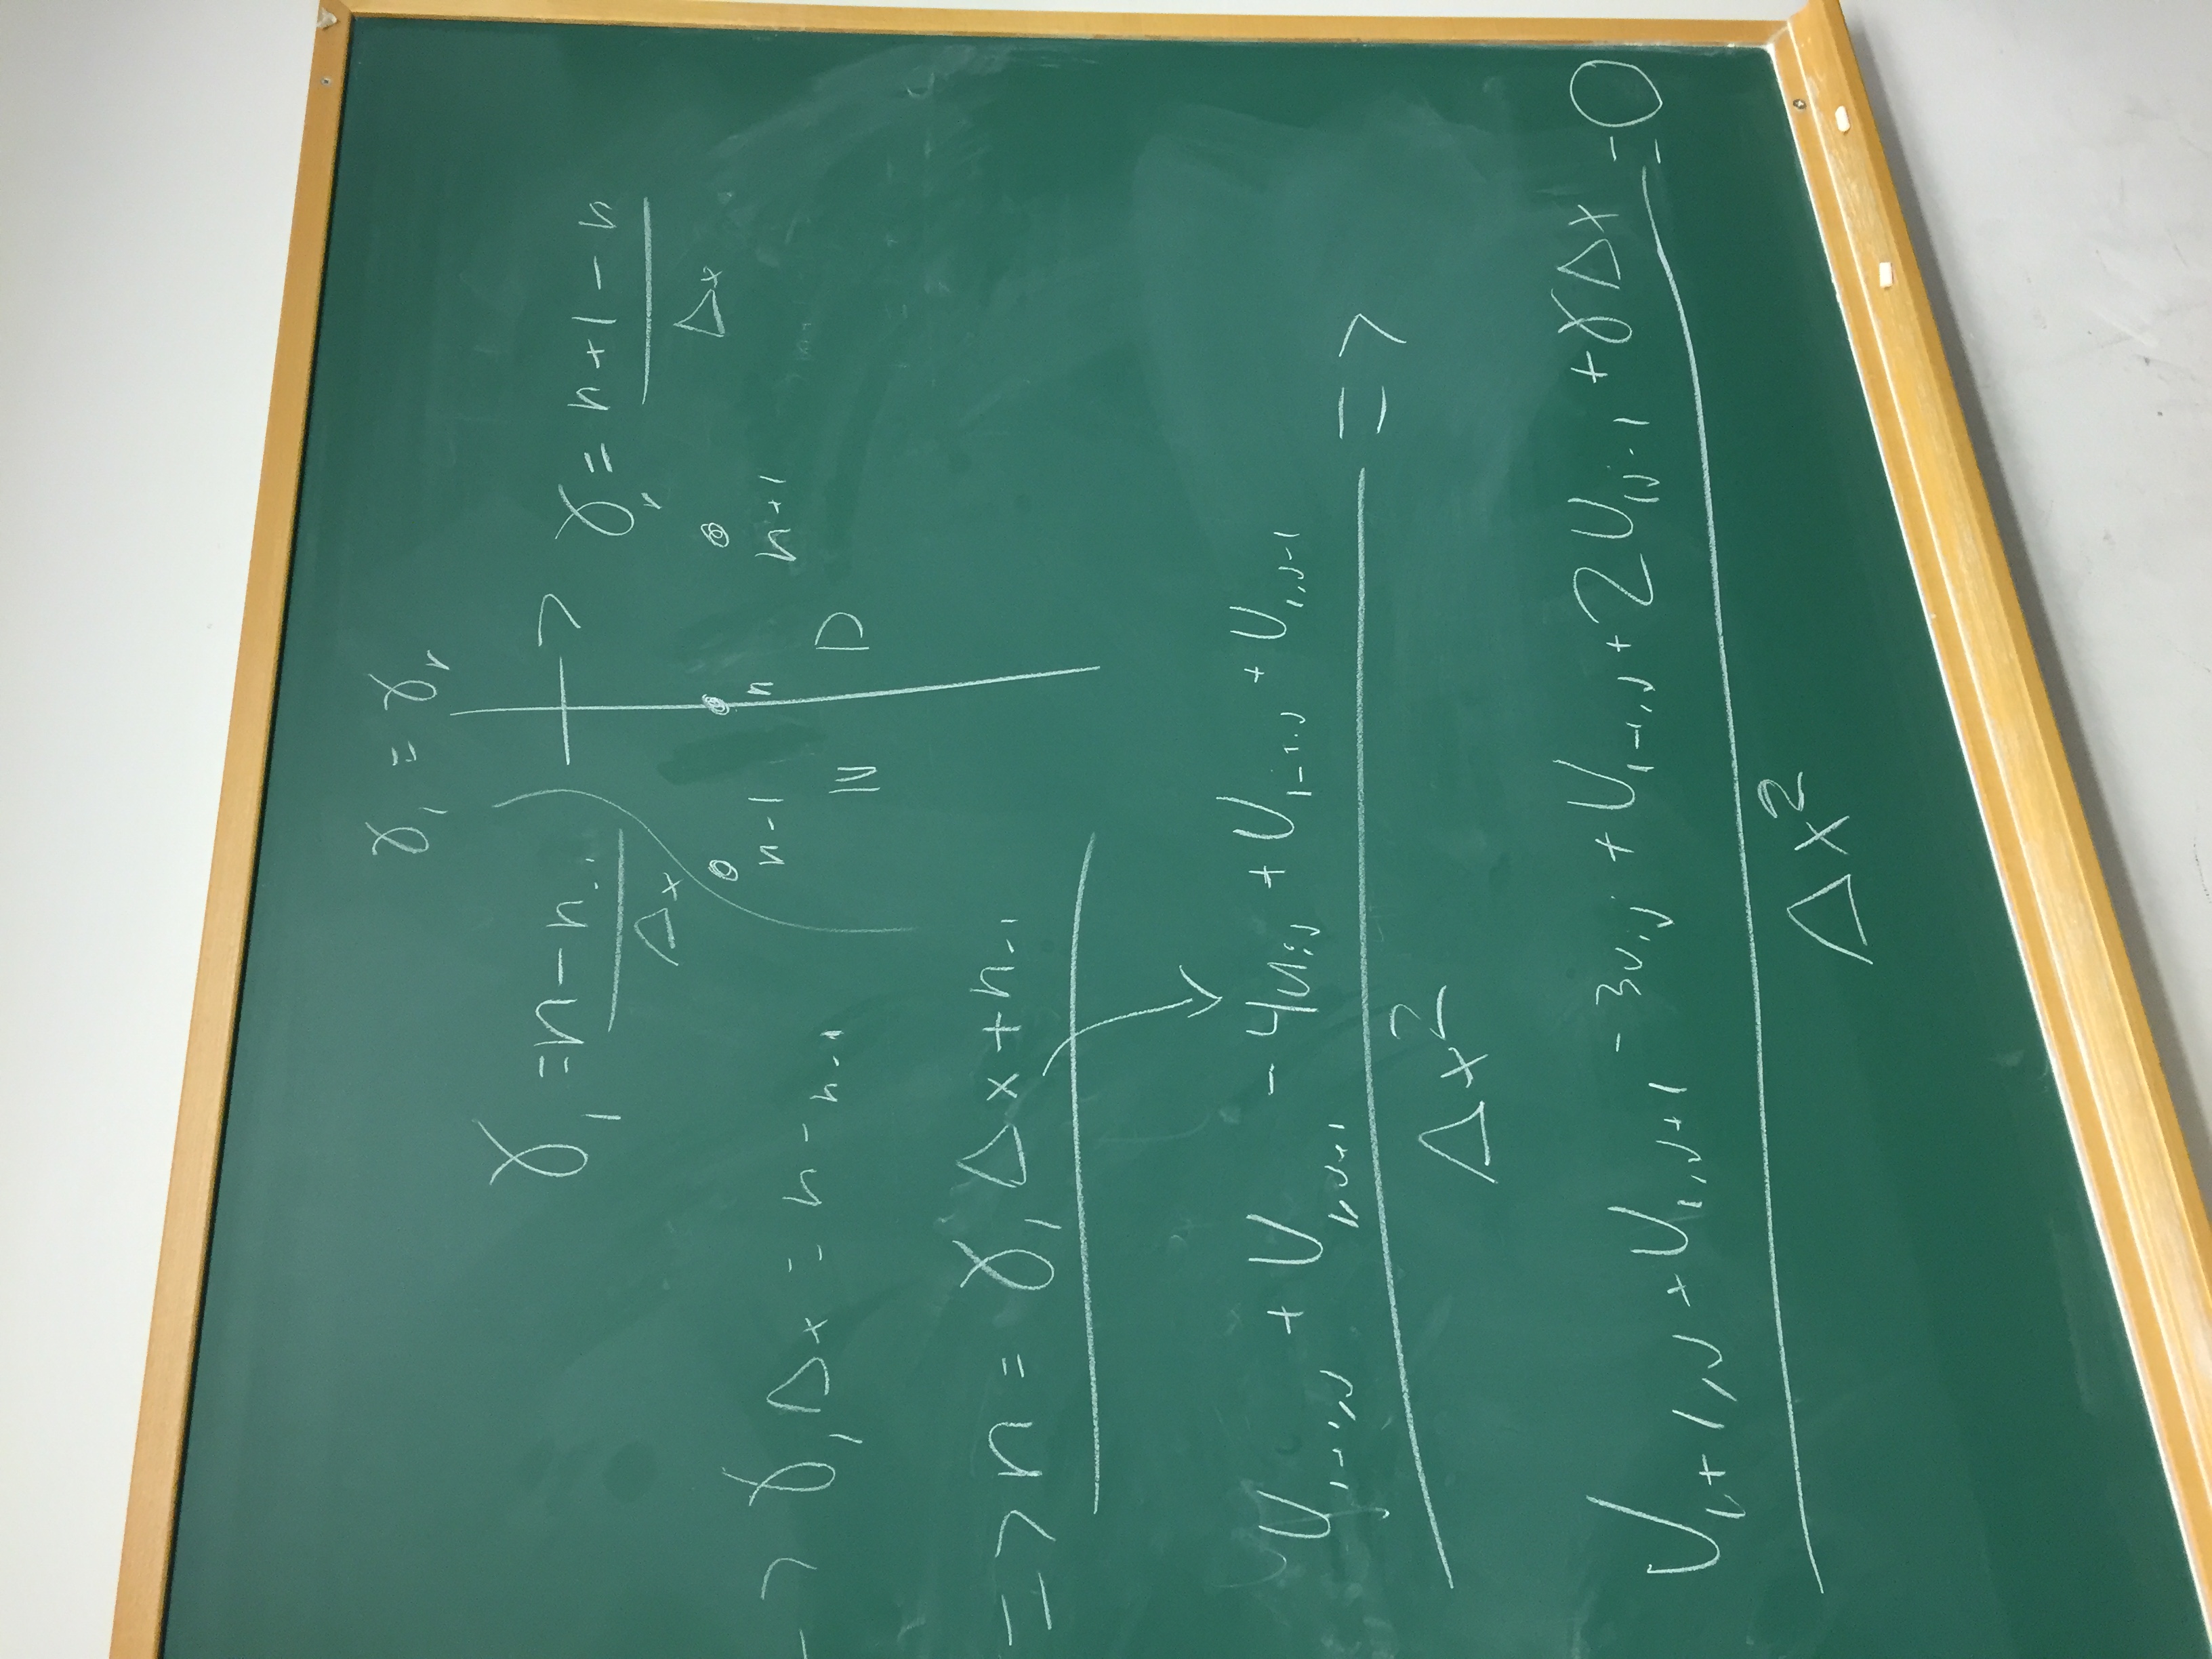 γ₁ = γᵣ
γ₁ = n - n₋₁ / Δx
γᵣ = n+1 - n / Δx
n-1 n n+1
-> γ₁Δx = n - n₋₁
N D
=> n = γ₁Δx + n₋₁
U_{i+1,j} + U_{i,j+1} - 4u_{i,j} + U_{i-1,j} + U_{i,j-1} / Δx² =>
U_{i+1,j} + U_{i,j+1} - 3u_{i,j} + U_{i-1,j} + 2U_{i,j-1} + γΔx / Δx² = 0